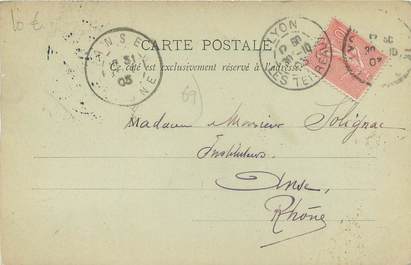 10 €
CARTE POSTALE
Ce côté est exclusivement réservé à l'adresse
ANSE
31
05
RHÔNE
LYON
LES TERREAUX
30 -10
05
69
Madame Monsieur Solignac
Instituteurs
Anse
Rhône